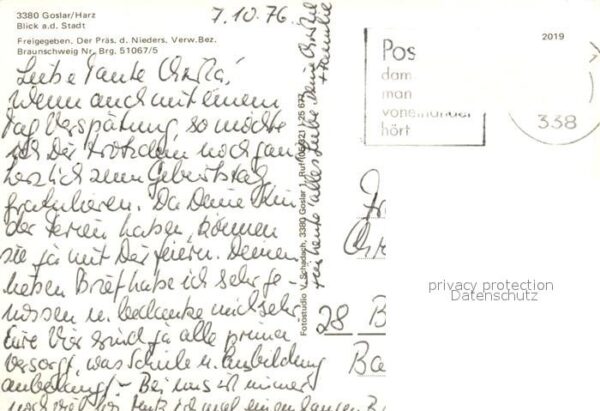 3380 Goslar/Harz
Blick a.d. Stadt
Freigegeben, Der Präs. d. Nieders. Verw.Bez.
Braunschweig Nr. Brg. 51067/5
7.10.76
Liebe Tante Christa!
Wenn auch mit einem
Tag Verspätung, so möchte
ich Dir trotzdem noch ganz
herzlich zum Geburtstag
gratulieren. Da Deine Kin-
der Ferien haben, können
sie ja mit Dir feiern. Deinen
lieben Brief habe ich sehr ge-
nossen u. bedanke mich sehr.
Eure Vier sind ja alle prima
versorgt, was Schule u. Ausbildung
anbelangt. - Bei uns ist immer
noch viel
Für heute alles Liebe, Deine
+ Familie
Fotostudio V. Schadach, 3380 Goslar 1, Ruf (05321) 25 672
Pos
dam
man
voneinander
hört
2019
338
28 B
Ba
privacy protection
Datenschutz